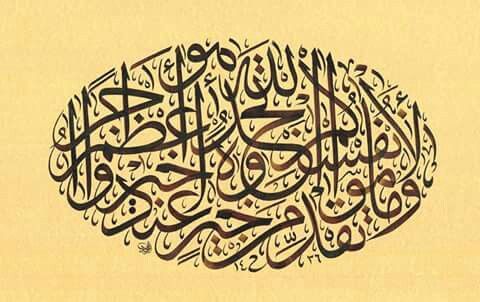 وما تقدموا لأنفسكم من خير تجدوه عند الله هو خيرا وأعظم أجرا
١٤٣٦